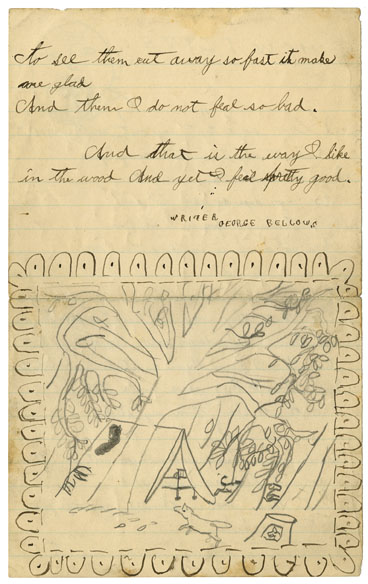 To see them eat away so fast it make
me glad
And then I do not feal so bad.
And that is the way I like
in the wood And yet I feel pretty good.
WRITER
GEORGE BELLOWS